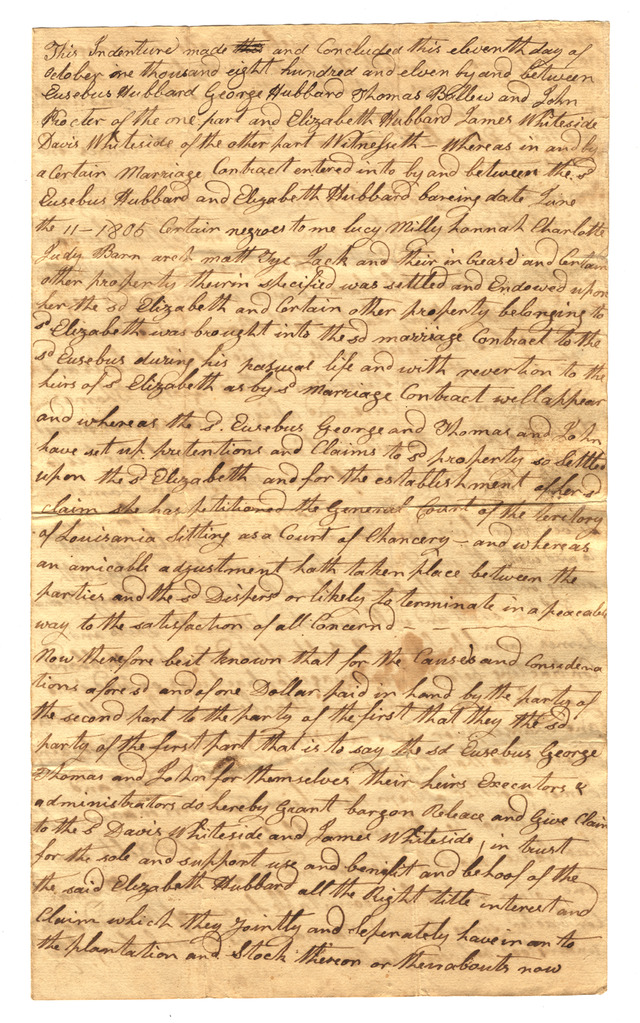 This Indenture made this and Concluded this eleventh day of
october one thousand eight hundred and elven by and between
Eusebus Hubbard George Hubbard Thomas Bollew and John
Procter of the one part and Elizabeth Hubbard James Whiteside
Davis Whiteside of the other part Witnesseth – Whereas in and by
a Certain Marriage Contract entered into by and between the sd
Eusebus Hubbard and Elizabeth Hubbard bareing date June
the 11 – 1806 Certain negroes to me lucy Milly hannah Charlotte
Judy Barn arch matt Jack and their increase and Certain
other property theirin specified was settled and Endowed upon
her the sd Elizabeth and Certain other property belonging to
sd Elizabeth was brought into the sd marriage Contract to the
sd Eusebus during his life and with revertion to the
heirs of sd Elizabeth as by sd Marriage Contract will appear
and whereas the sd. Eusebus George and Thomas and John
have set up pretentions and Claims to sd property so Settled
upon the sd Elizabeth and for the establishment of her sd
claim she has petitioned the General Court of the teritory
of Louisania sitting as a Court of Chancery – and whereas
an amicable adjustment hath taken place between the
parties and the sd Dispers or likely to terminate in a peaceable
way to the satisfaction of all Concernd –
Now therefore beit known that for the Causes and Considera
tions afore sd and of one Dollar paid in hand by the party of
the second part to the party of the first that they the sd
party of the first part that is to say the sd Eusebus George
Thomas and John for themselves their heirs Executors &
administrators do hereby Grant bargon Releace and Give Claim
to the sd Davis Whiteside and James Whiteside in trust
for the sole and support use and benifit and behoof of the
the said Elizabeth Hubbard all the Right title interest and
Claim which they Jointly and seperately have in an to
the plantation and Stock thereon or thereabouts now